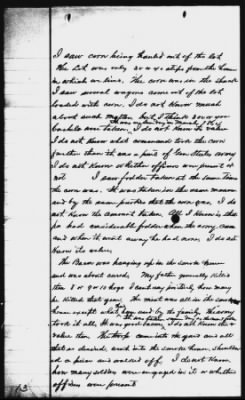 I saw corn being hauled out of the lot
The Lot was only 30 or 40 steps from the house
in which we live. The corn was in the shuck
I saw several wagons come out of the lot
loaded with corn. I do not know much
about such matters but I think 50 or 100
bushels were taken. I do not know the value
I do not know what command took the corn
further than it was a part of Gen Army
I do not know whether officers were present or
not I saw fodder taken at the same time
the corn was. It was taken in the same manner
and by the same parties that the corn was. I do
not know the amount taken. All I know is that
pa had considerable fodder when the army came
and when it went away he had none. I do not
know its value.
The Bacon was hanging up in the smoke house
and was about cured. My father generally killed
8 or 9 or 10 hogs I cant say positively how many
he killed that year. The meat was all in the smoke
house except what had been used by the family. The army
took it all. It was good bacon. I do not know the
value. The troops came into the yard and all
that as desired, went into the smoke house, shouldered
up a piece and walked off. I do not know
how many soldiers were engaged in it or whether
officers were present